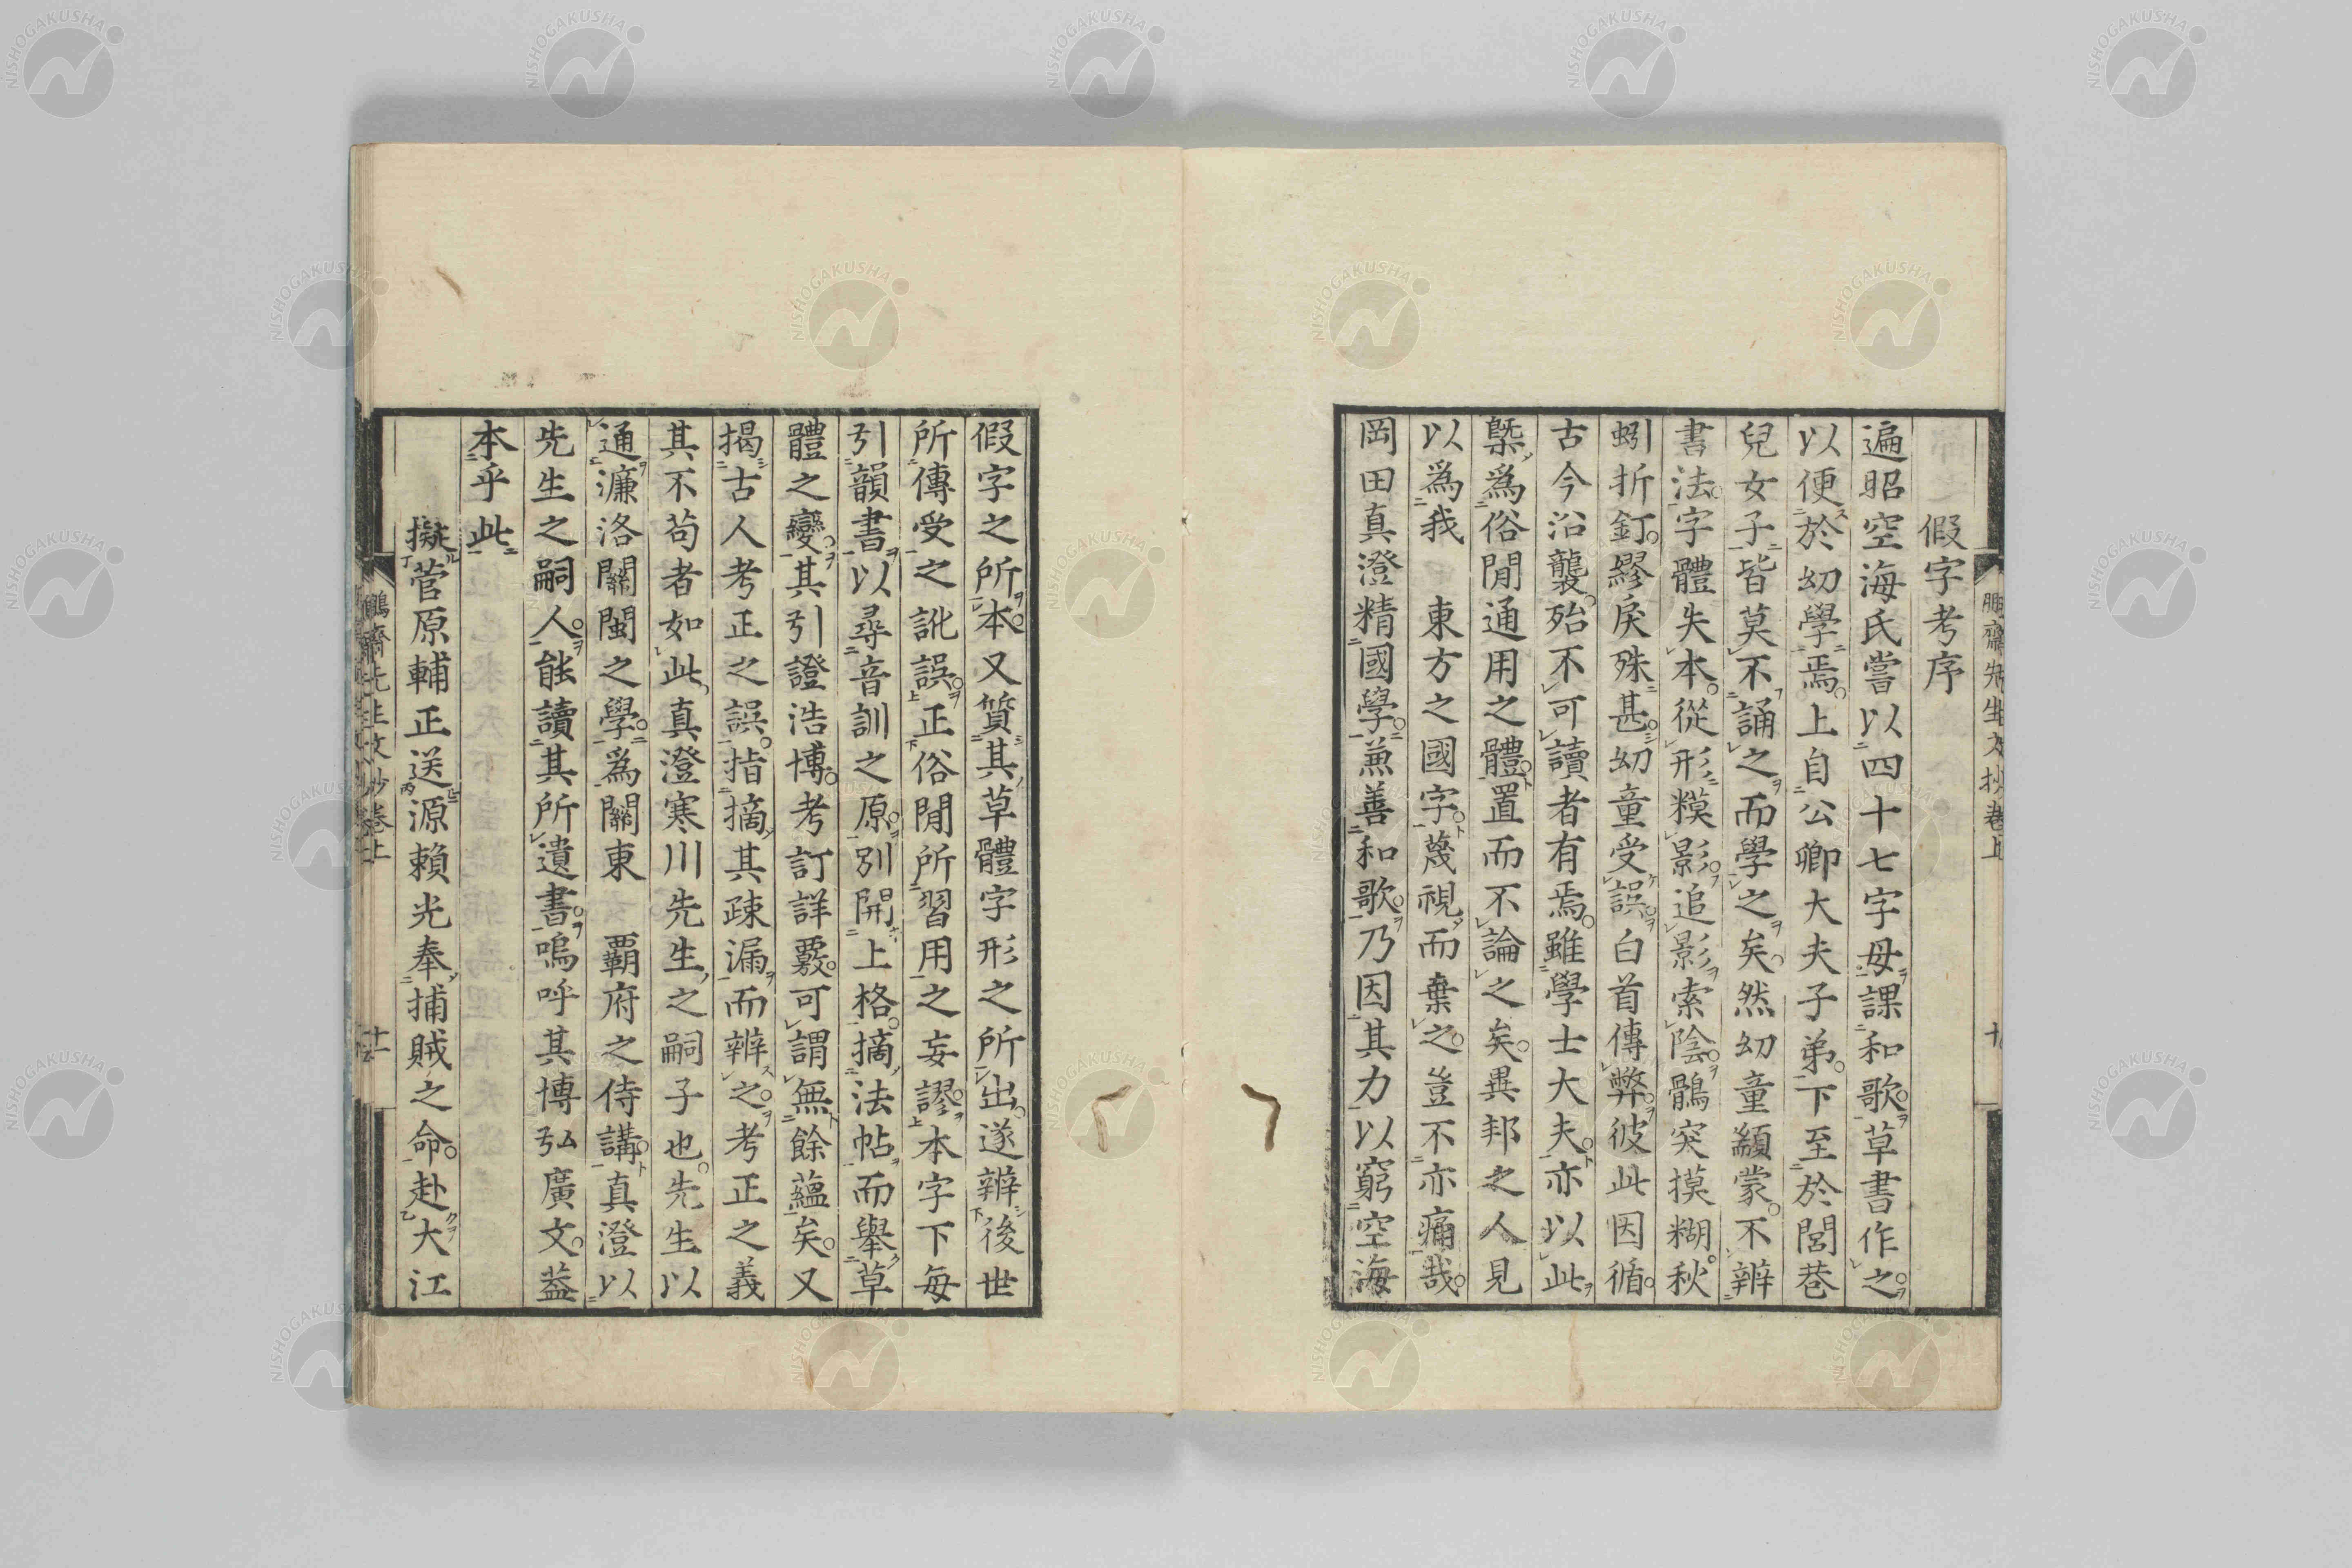 假字考序
遍昭空海氏嘗以四十七字母課和歌草書作之
以便於幼學焉上自公卿大夫子弟下至於閭巷
兒女子皆莫不誦之而學之矣然幼童顓蒙不辨
書法字體失本從形糢影追影索陰鶻突摸糊秋
蚓折釘繆戾殊甚幼童受誤白首傳弊彼此因循
古今沿襲殆不可讀者有焉雖學士大夫亦以此
槩爲俗閒通用之體置而不論之矣異邦之人見
以爲我 東方之國字蔑視而棄之豈不亦痛哉
岡田真澄精國學兼善和歌乃因其力以窮空海
假字之所本又質其草體字形之所出遂辨後世
所傳受之訛誤正俗閒所習用之妄謬本字下毎
引韻書以尋音訓之原別開上格摘法帖而舉草
體之變其引證浩博考訂詳覈可謂無餘蘊矣又
揭古人考正之誤指摘其疎漏而辨之考正之義
其不苟者如此真澄寒川先生之嗣子也先生以
通濂洛關閩之學爲關東 覇府之侍講真澄以
先生之嗣人能讀其所遺書嗚呼其博弘廣文蓋
本乎此
擬菅原輔正送源賴光奉捕賊之命赴大江
鵬齋先生文抄卷上
鵬齋先生文抄卷上 十一
NISHOGAKUSHA